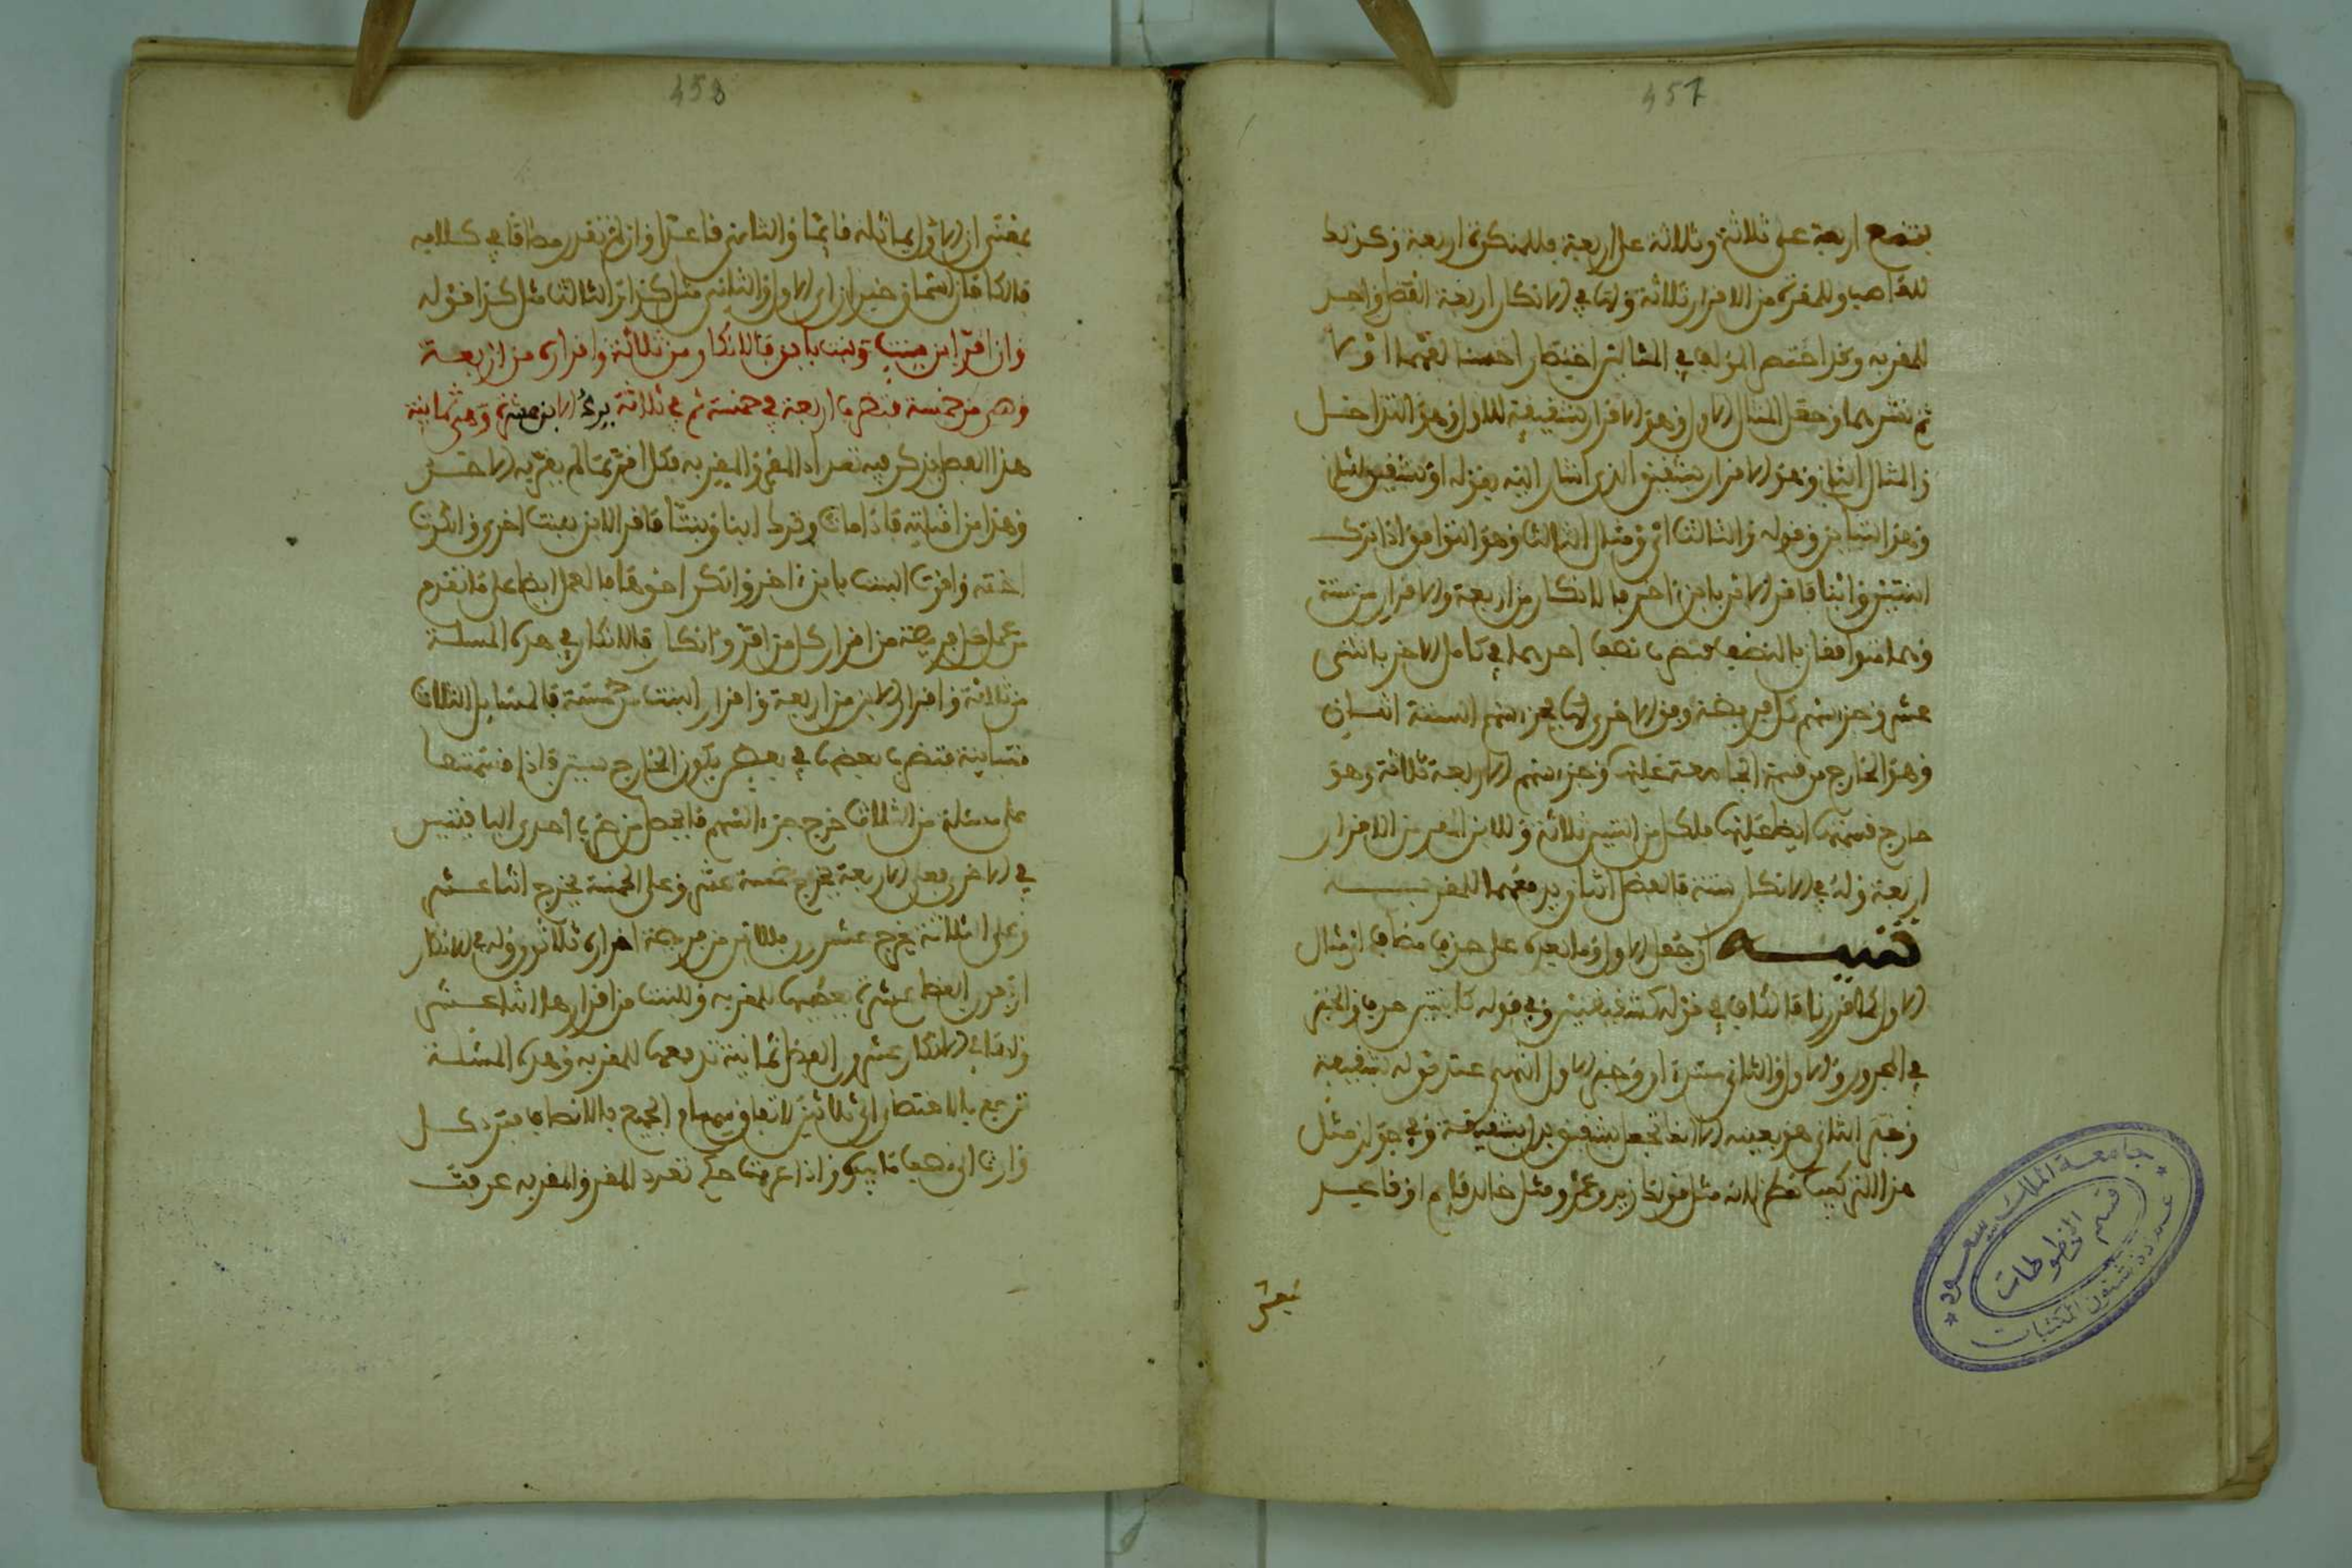 457
اربعة على ثلاثة وثلاثة على اربعة فللمنكرة اربعة وكذلك
للغاصب وللمقرة من الاقرار ثلاثة ولها في الانكار اربعة الفضل واحد
للمقر به وقد اختصر المؤلف في المثالين اختصارا حسنا
ثم نشر بهما وحقل المثال الاول وهو الاقرار بشقيقة للاول وهو التداخل
والمثال الثاني وهو الاقرار بشقيق الذي اشار اليه بقوله او بشقيق
وهذا التباين وقوله والثالث اي ومثال الثالث وهو التوافق اذا ترك
ابنتين وابنا فاقر الابن بابن اخر فالانكار من اربعة والاقرار من ستة
وهما متوافقان بالنصف فتضرب نصف احدهما في كامل الاخر باثنى
عشر وجزء سهم كل فريضة وفق الاخرى فجزء سهم الستة اثنان
وهو الخارج من قسمة الجامعة عليها وجزء سهم الاربعة ثلاثة وهو
خارج قسمتها ايضا عليها فلكل من ابنتين ثلاثة وللابن المقر من الاقرار
اربعة وله في الانكار ستة فالفضل اثنان يدفعهما للمقر به
تنبيه
الاول كما قررنا فالكاف في قوله كشقيقتين وفي قوله كابنتين حرف والخبر
في المجرور والاول والثاني مبتدا وخبر الاول انتهى عند قوله شقيقة
وخبر الثاني هو بعينه الا انك تجعل شقيق بدل شقيقة وفي جواز مثل
هذا التركيب نظر لانه مثل قولك زيد وعمرو مثل خالد قايم او قاعد
جامعة الملك سعود
قسم المخطوطات
عمادة شئون المكتبات
458
بمعنى ان الاول فايما والثاني قاعدا وان لم نقدر مضافا في كلامه
فالكافان اسمان خبران اي الاول والثاني مثل كذا الثالث مثل كذا قوله
وان اقر ابن ببنت وبنت بابن فالانكار من ثلاثة واقراره من اربعة
وهي من خمسة فتضرب اربعة في خمسة ثم في ثلاثة يرد الابن عشرة وهي ثمانية
هذا الفصل يذكر فيه تعداد المقر والمقر به فكل اقر بما لم يقر به الاخر
وهذا من امثلته فاذا مات وترك ابنا وبنتا فاقر الابن ببنت اخرى وانكرت
اخته واقرت البنت بابن اخر وانكر اخوها فالعمل ايضا على ما تقدم
من عمل فريضة من اقرار كل من اقر وانكار فالانكار في هذه المسلة
من ثلاثة واقرار الابن من اربعة واقرار البنت من خمسة فالمسايل الثلاث
متباينة فتضرب بعضها في بعض يكون الخارج ستين فاذا قسمتها
على مسئلة من الثلاث خرج جزء السهم فالحاصل من ضرب احدى الباقيتين
في الاخرى فعلى الاربعة يخرج خمسة عشر وعلى الخمسة يخرج اثنا عشر
وعلى الثلاثة يخرج عشرون فللابن من فريضة اقراره ثلاثون وله في الانكار
اربعون الفضل عشرة يعطيها للمقر به وللبنت من اقرارها اثنا عشر
ولها في الانكار عشرون الفضل ثمانية تدفعها للمقر به وهذه المسئلة
ترجع بالاختصار الى ثلاثين لاتفاق سهام الجميع بالانصاف فيرد كل
وارث الى نصف ما بيده واذا عرفت حكم تعدد المقر والمقر به عرفت